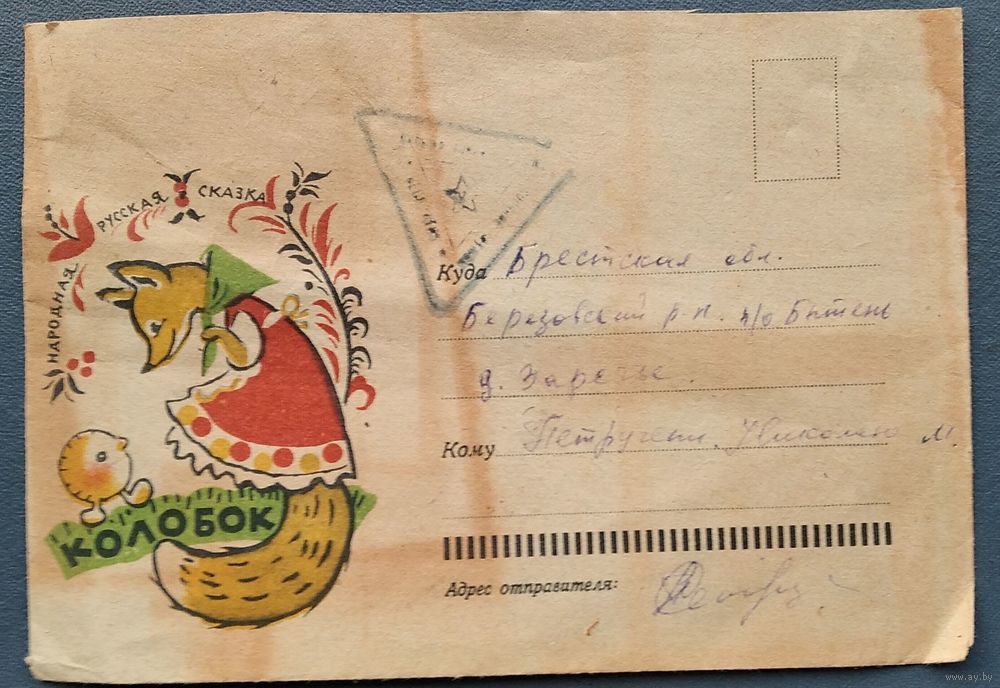 НАРОДНАЯ РУССКАЯ СКАЗКА
КОЛОБОК
Куда Брестская обл.
Березовский р-н. п/о Бытень
д. Заречье.
Кому Николаю М.
Адрес отправителя:
www.ay.by